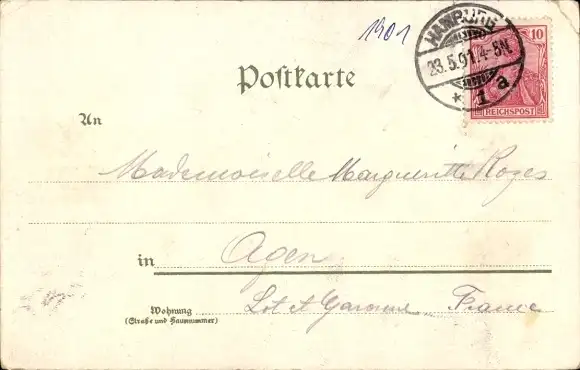 1901
HAMBURG
23.5.01.4-5N.
* 1 a
10
REICHSPOST
Postkarte
An
Mademoiselle Marguerite Roges
in Agen
Wohnung
(Straße und Hausnummer)
Lot et Garonne France